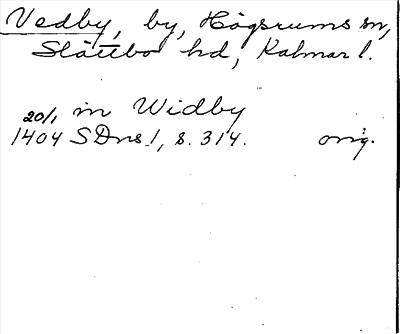 Vedby, by, Högsrums sn,
Slättbo hd, Kalmar l.
20/1 in Widby
1404 SDns 1, s. 314. orig.